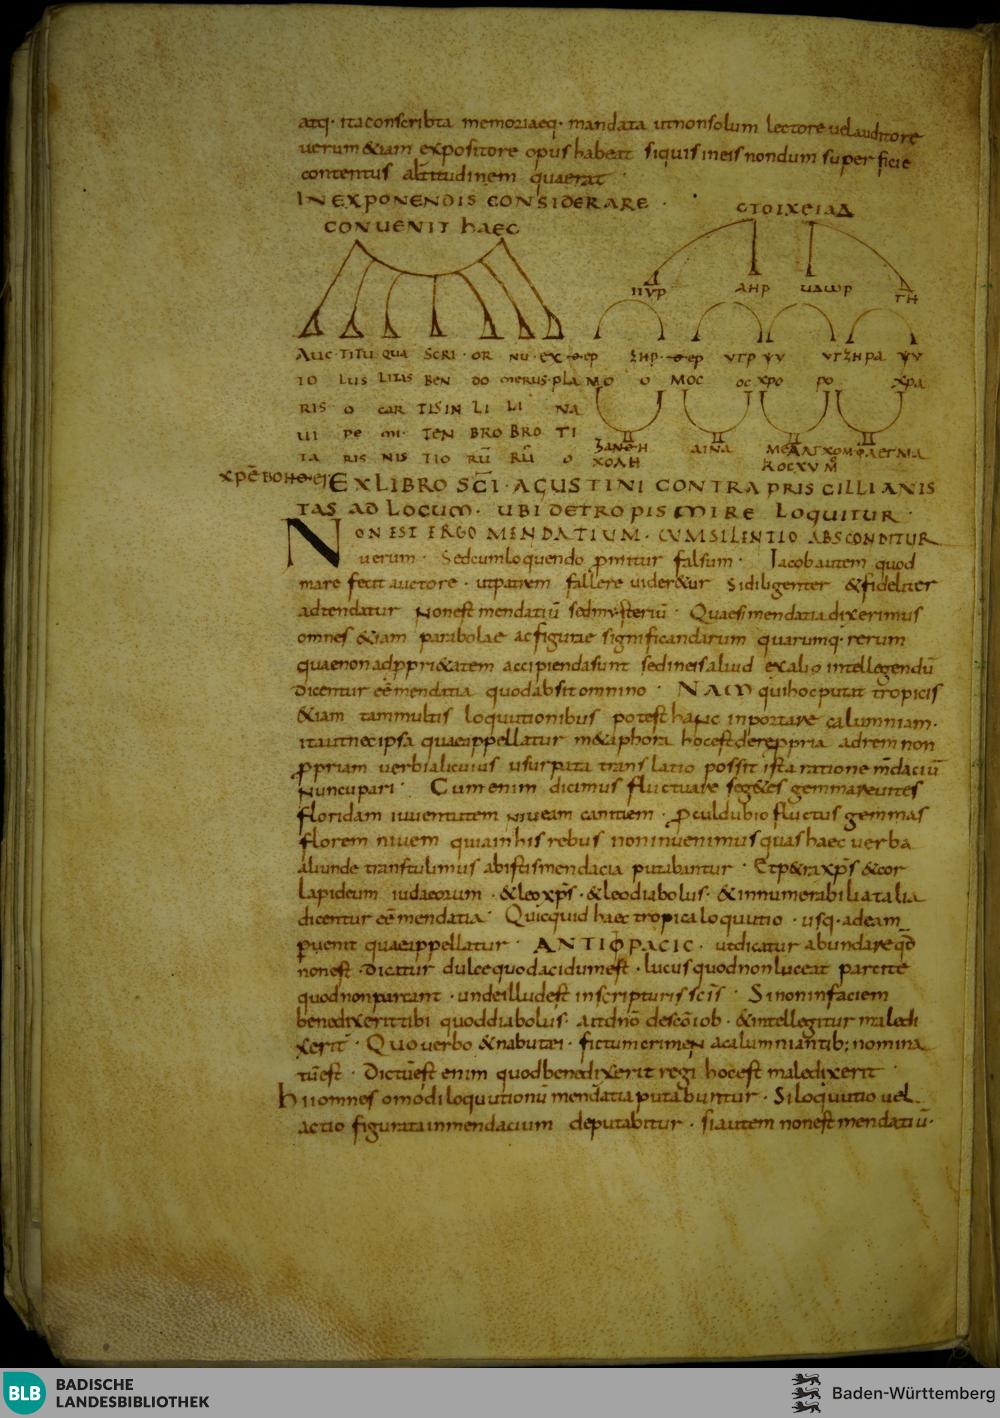 atq· ita conscribta memoriaeq· mandata ut non solum lectore uel auditore
uerum &iam expositore opus habeat siquis in eis nondum superficie
contentus altitudinem quaerat
IN EXPONENDIS CONSIDERARE ·
CONUENIT haec
CTOIXEIAΔ
ΠΥΡ ΑΗΡ ΥΔΩΡ ΓΗ
AUC· TITU QUA SCRI· OR NU· EX
TO LUS LITAS BEN DO MERUS· PLA
RIS O CAR TIS IN LI LI NA
UI PE MI· TEN BRO BRO TI
TA RIS NIS TIO RŪ RŪ O
ΧΟΛΗ
EX LIBRO SC̄I· AGUSTINI CONTRA PRISCILLIANIS
TAS AD LOCUM· UBI DE TROPIS MIRE LOQUITUR·
NON EST ERGO MENDATIUM· CUM SILENTIO ABSCONDITUR
uerum· Sed cum loquendo promitur falsum· Iacob autem quod
mare fecit auctore· ut patrem fallere uider&ur Si diligenter &fideliter
adtendatur Non est mendatiū sed mysteriū· Quae si mendatia dixerimus
omnes &iam parabolae ac figurae significandarum quarumq· rerum
quae non ad ppri&atem accipienda sunt sed in eis aliud ex alio intellegendū
dicentur eē mendatia quod absit omnino· NAM qui hoc putat tropicis
&iam tam multis loquutionibus potest hanc inportare calumniam·
ita ut nec ipsa quae appellatur m&aphora hoc est de re ppria ad rem non
ppriam uerbi alicuius usurpata translatio possit ista ratione m̄daciū
Nuncupari· Cum enim dicimus fluctuare seg&es gemmare uites
floridam iuuentutem niueam canitiem· proculdubio fluctus gemmas
florem niuem quia in his rebus non inuenimus quas haec uerba
aliunde transtulimus ab istis mendacia putabuntur· Et p&ra xp̄s &cor
lapideum iudaeorum· &leo xp̄s· &leo diabolus· &innumerabilia talia
dicentur eē mendatia· Quicquid haec tropica loquutio· usq· ad eam
puenit quae appellatur· ANTIΦPACIC· ut dicatur abundare qd̄
non est· Dicatur dulce quod acidum est· lucus quod non luceat parcae
quod non parcant· unde illud est in scripturis scīs· Si non in faciem
benedixerit tibi quod diabolus· ait dn̄o de scō iob· &intellegitur maledi
xerit· Quo uerbo &nabutae· fictum crimen a calumniantib; nomina
tū est· Dictū est enim quod benedixerit regi hoc est maledixerit
hii omnes omodi loquutionū mendatia putabuntur· Si loquutio uel
actio figurata in mendacium deputabitur· si autem non est mendatiū·
BLB
BADISCHE
LANDESBIBLIOTHEK
Baden-Württemberg